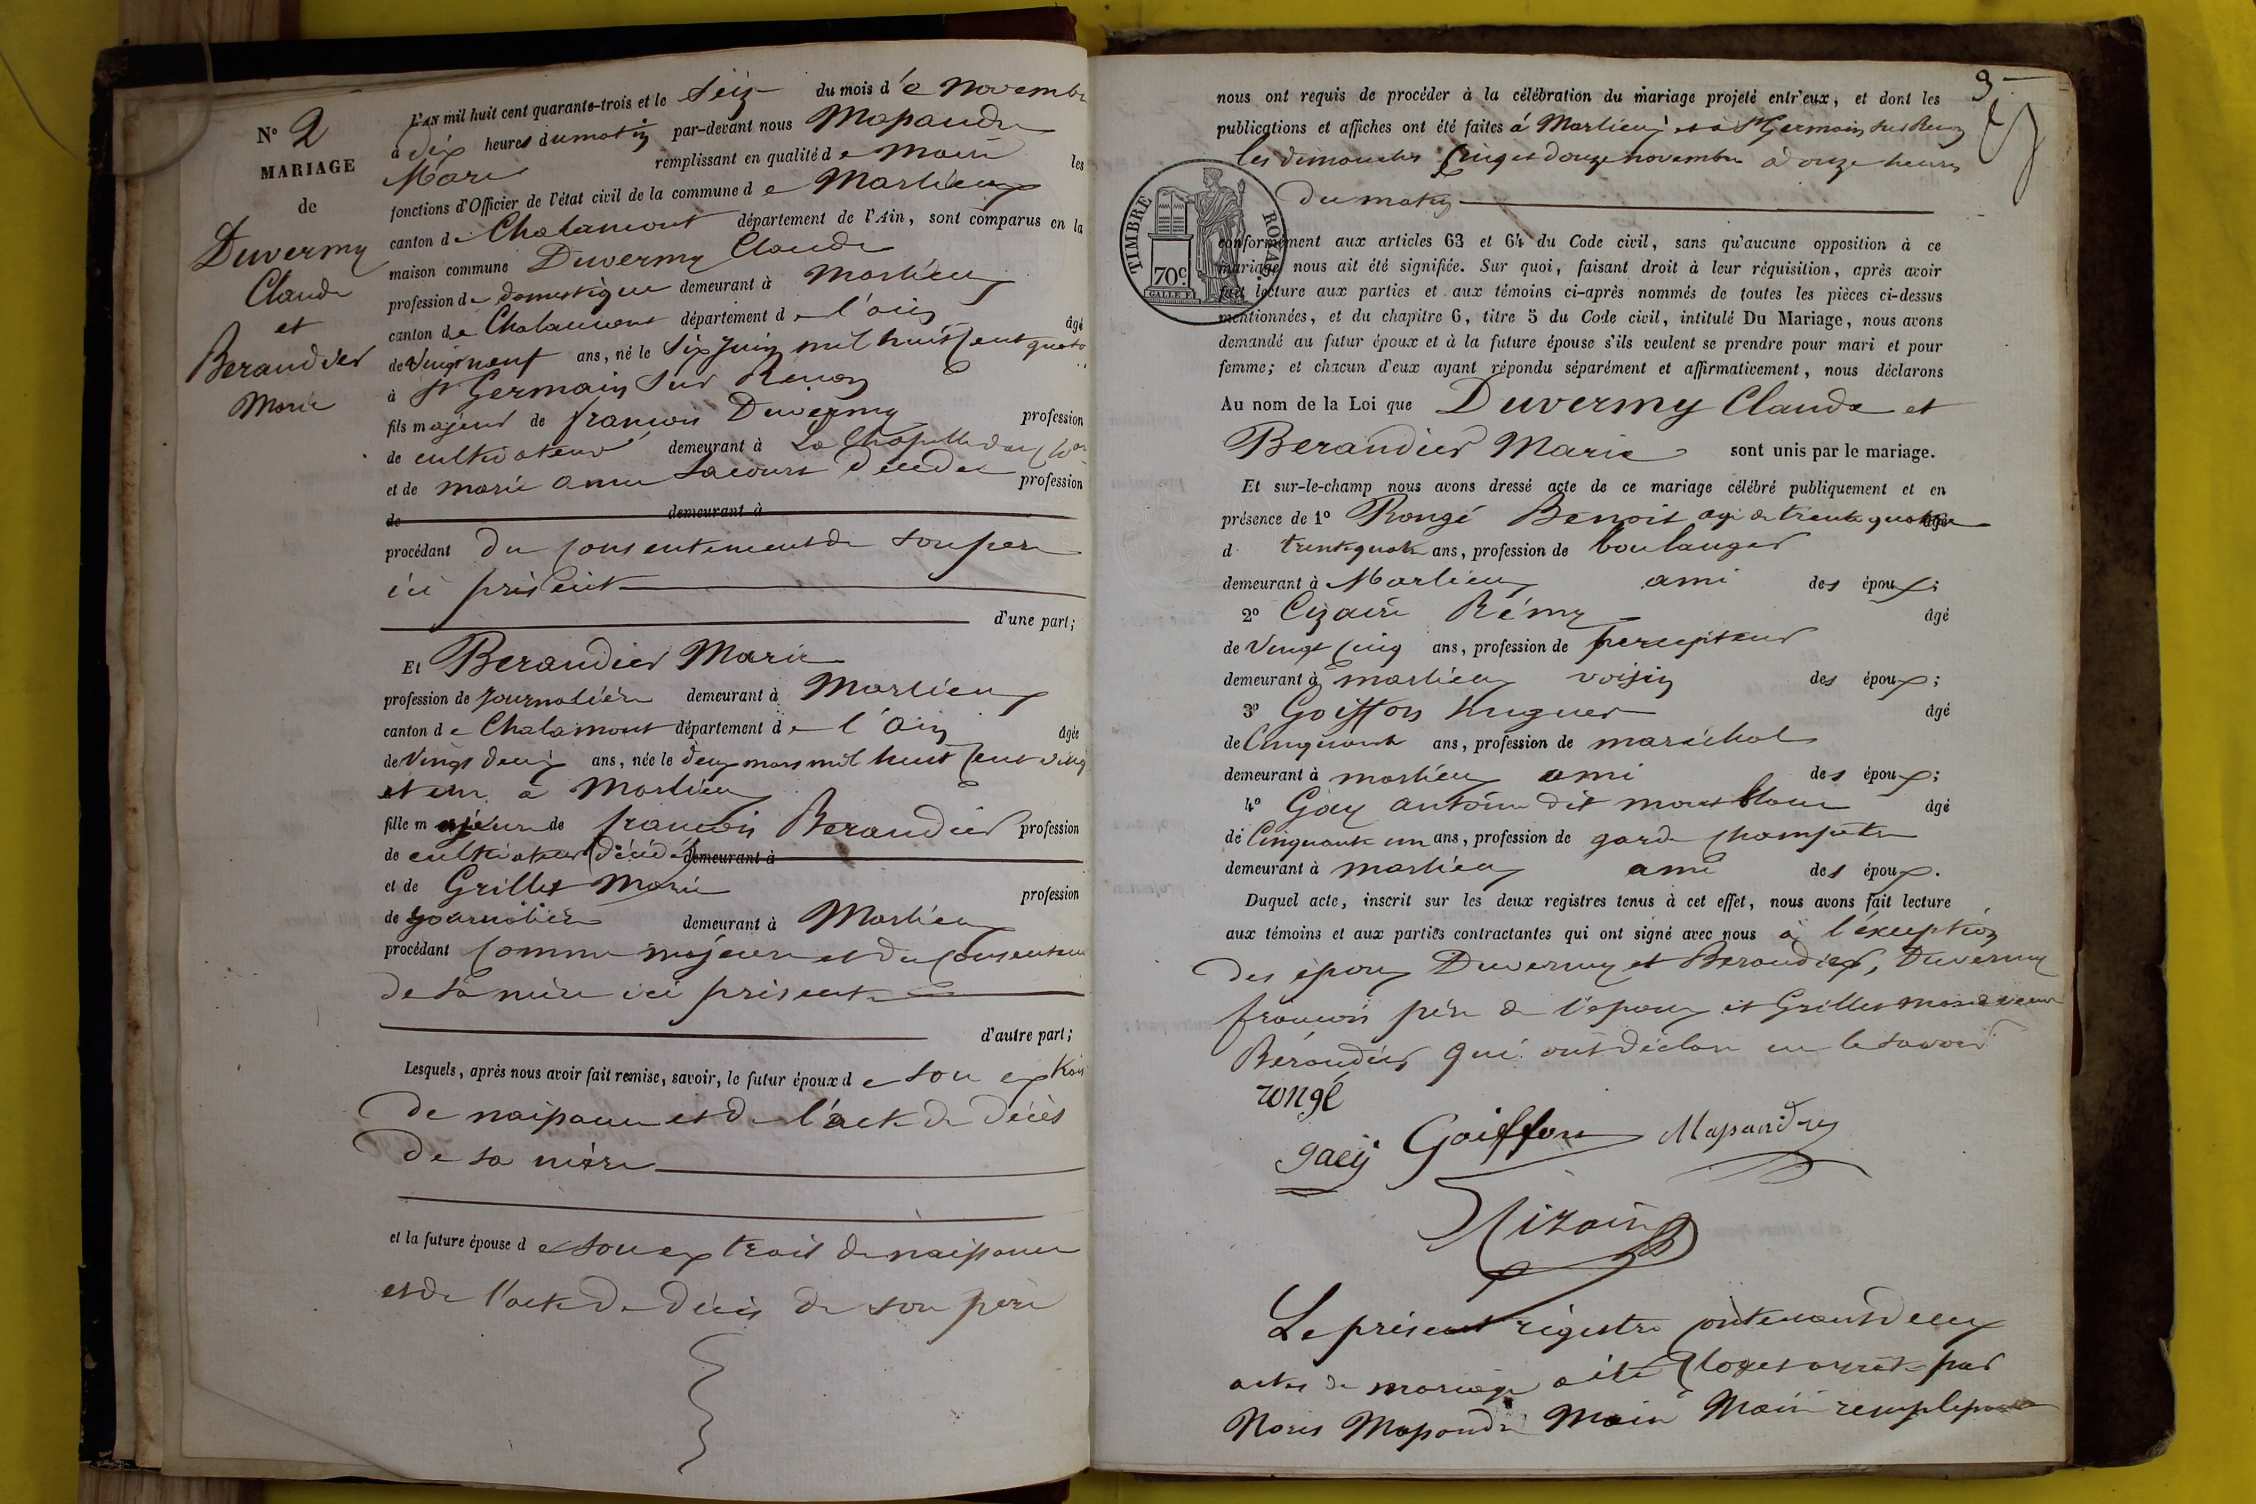 N° 2
MARIAGE
de
Duvermy
Claude
et
Beraudier
Marie
L'AN mil huit cent quarante-trois et le Seize du mois de Novembre
à dix heures du matin par-devant nous Mapandre
Marie remplissant en qualité de Maire les
fonctions d'Officier de l'état civil de la commune de Marlieux
canton de Chalamont département de l'Ain, sont comparus en la
maison commune Duvermy Claude
profession de domestique demeurant à Marlieux
canton de Chalamont département de l'ain âgé
de Vingt neuf ans, né le Six Juin mil huit Cent quato
à St Germain Sur Renon
fils majeur de françois Duvermy profession
de cultivateur demeurant à La Chapelle du Chon
et de marie anne Lacour décédée profession
de demeurant à
procédant du consentement de son père
ici présent
d'une part;
Et Beraudier Marie
profession de journalière demeurant à Marlieux
canton de Chalamont département de l'Ain âgée
de Vingt deux ans, née le deux mars mil huit Cent vingt
et un à Marlieux
fille majeure de françois Beraudier profession
de cultivateur décédé demeurant à
et de Grillet Marie profession
de journalière demeurant à Marlieux
procédant comme majeure et du consentement
de sa mère ici présente
d'autre part;
Lesquels, après nous avoir fait remise, savoir, le futur époux de son extrait
de naissance et de l'acte de décès
de sa mère
et la future épouse de son extrait de naissance
et de l'acte de décès de son père
3
nous ont requis de procéder à la célébration du mariage projeté entr'eux, et dont les
publications et affiches ont été faites à Marlieux et à St Germain sur Renon
les dimanches Cinq et douze novembre à onze heures
du matin
TIMBRE ROYAL
70 c.
conformément aux articles 63 et 64 du Code civil, sans qu'aucune opposition à ce
mariage nous ait été signifiée. Sur quoi, faisant droit à leur réquisition, après avoir
fait lecture aux parties et aux témoins ci-après nommés de toutes les pièces ci-dessus
mentionnées, et du chapitre 6, titre 5 du Code civil, intitulé Du Mariage, nous avons
demandé au futur époux et à la future épouse s'ils veulent se prendre pour mari et pour
femme; et chacun d'eux ayant répondu séparément et affirmativement, nous déclarons
Au nom de la Loi que Duvermy Claude et
Beraudier Marie sont unis par le mariage.
Et sur-le-champ nous avons dressé acte de ce mariage célébré publiquement et en
présence de 1° Rongé Benoit agé de trente quatre âgé
d trente quatre ans, profession de boulanger
demeurant à Marlieux ami des époux;
2° Cizaire Rémy âgé
de Vingt cinq ans, profession de percepteur
demeurant à marlieux voisin des époux;
3° Goiffon hugues âgé
de Cinquante ans, profession de maréchal
demeurant à marlieux ami des époux;
4° Gay antoine dit mont blanc âgé
de Cinquante un ans, profession de garde champêtre
demeurant à marlieux ami des époux.
Duquel acte, inscrit sur les deux registres tenus à cet effet, nous avons fait lecture
aux témoins et aux parties contractantes qui ont signé avec nous à l'éxception
des époux Duvermy et Beraudier, Duvermy
françois père de l'époux et Grillet marie veuve
Béraudier qui ont déclaré ne le savoir
rongé
gacy Goiffon Mapandre
Cizaire
Le présent régistre contenant deux
actes de mariage a été Clos et arrêté par
Nous Mapandre Maire